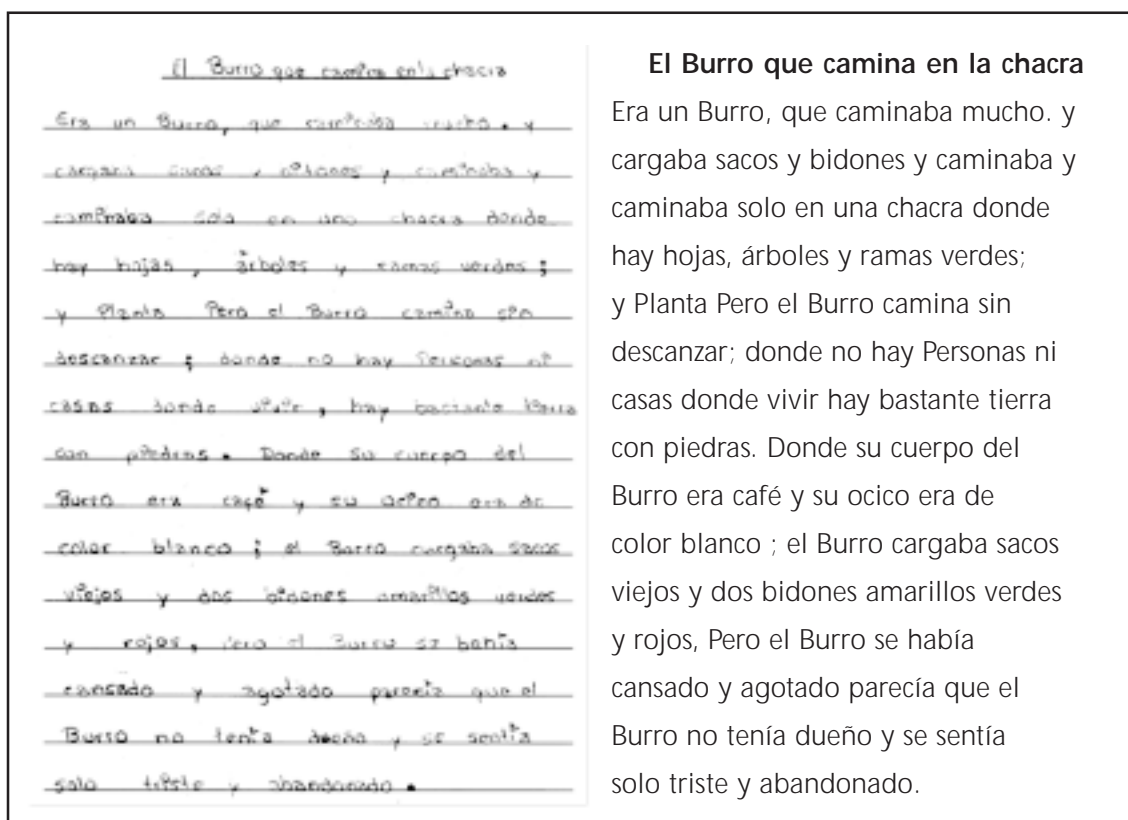 El Burro que camina en la chacra
Era un Burro, que caminaba mucho. y
cargaba sacos y bidones y caminaba y
caminaba solo en una chacra donde
hay hojas, árboles y ramas verdes;
y Planta Pero el Burro camina sin
descanzar; donde no hay Personas ni
casas donde vivir, hay bastante tierra
con piedras. Donde su cuerpo del
Burro era café y su ocico era de
color blanco; el Burro cargaba sacos
viejos y dos bidones amarillos verdes
y rojos, Pero el Burro se había
cansado y agotado parecía que el
Burro no tenía dueño y se sentía
solo triste y abandonado.
El Burro que camina en la chacra
Era un Burro, que caminaba mucho. y
cargaba sacos y bidones y caminaba y
caminaba solo en una chacra donde
hay hojas, árboles y ramas verdes;
y Planta Pero el Burro camina sin
descanzar; donde no hay Personas ni
casas donde vivir hay bastante tierra
con piedras. Donde su cuerpo del
Burro era café y su ocico era de
color blanco ; el Burro cargaba sacos
viejos y dos bidones amarillos verdes
y rojos, Pero el Burro se había
cansado y agotado parecía que el
Burro no tenía dueño y se sentía
solo triste y abandonado.